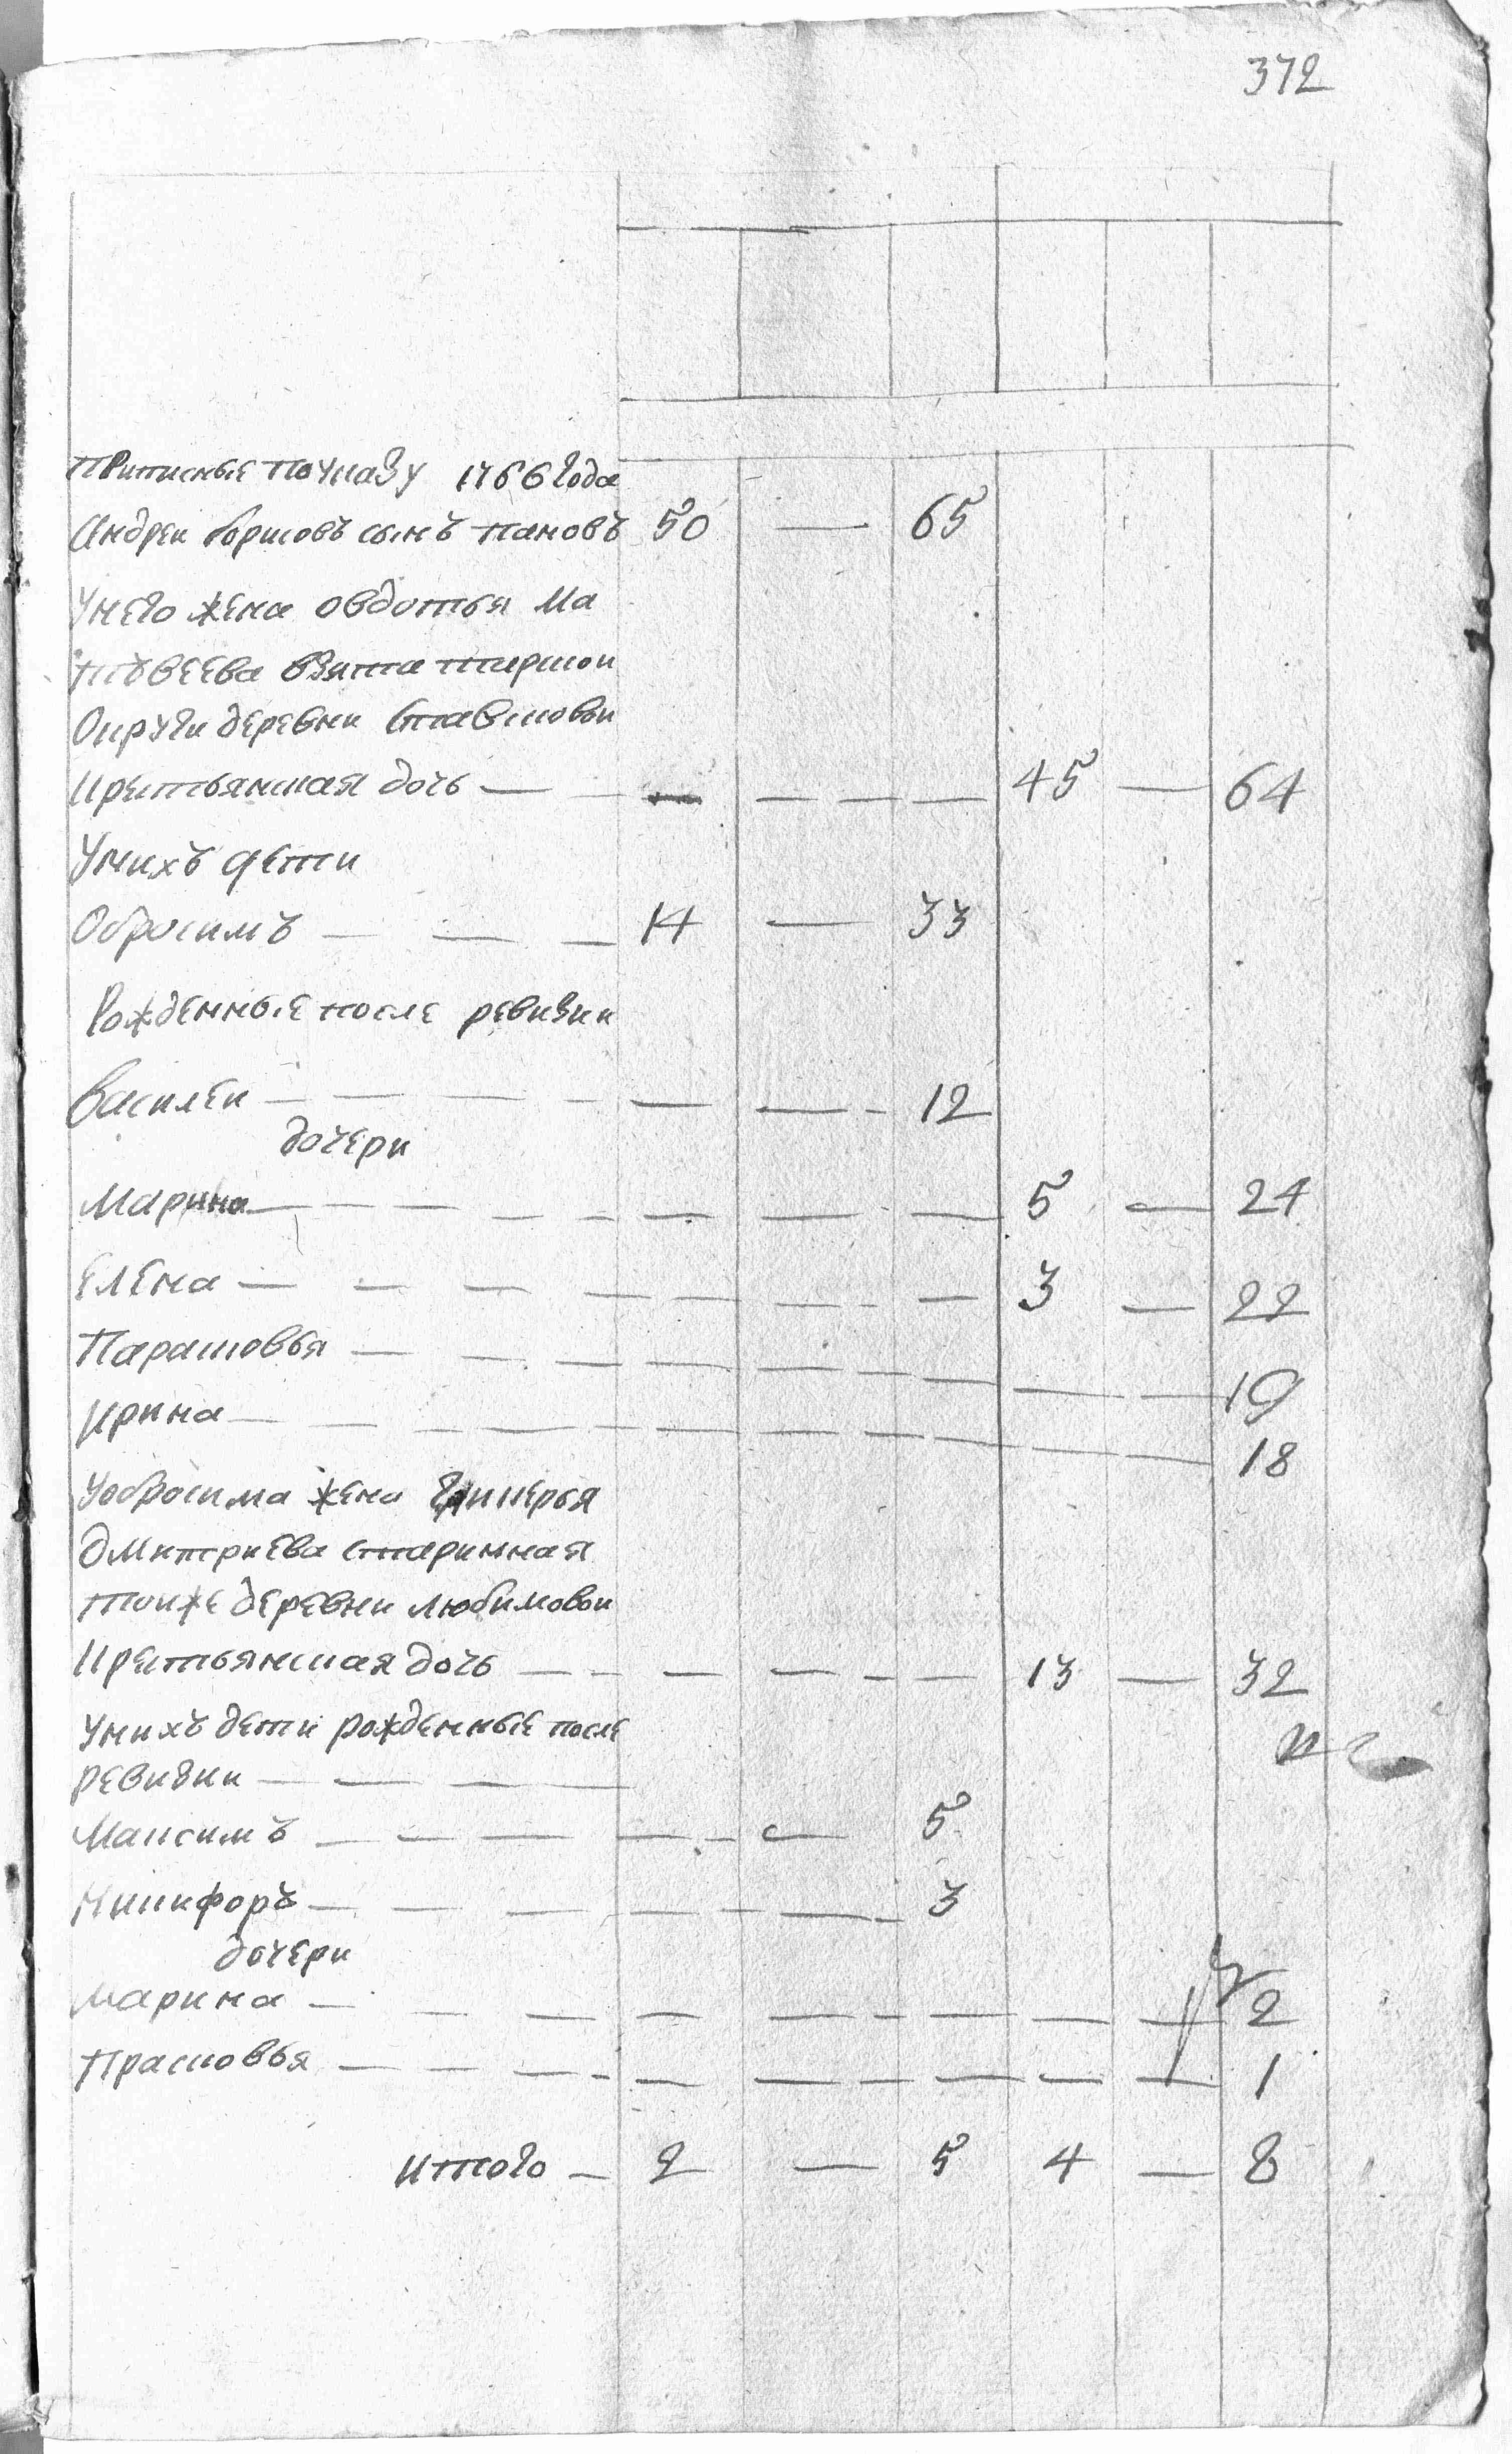 372
Приписные по указу 1766 года
Андреи борисовъ сынъ пановъ 50 — 65
У него жена овдотья Ма
твеева взята тоиже
Округи деревни
крестьянская дочь — — — — — 45 — 64
У нихъ дети
Обросимъ — — — 14 — 33
Рожденные после ревизии
василеи — — — — — — — 12
дочери
Марина — — — — — — — — 5 — 24
Елена — — — — — — — — 3 — 22
Парасковья — — — — — — — — — 19
Ирина — — — — — — — — — — 18
У обросима жена
дмитриева старинная
тоиже деревни любимовои
крестьянская дочь — — — — — — 13 — 32
У нихъ дети рожденные после
ревизии — — —
Максимъ — — — — — — 5
Никифоръ — — — — — — — 3
дочери
марина — — — — — — — — — 2
Прасковья — — — — — — — — — — 1
итого — 2 — 5 4 — 8